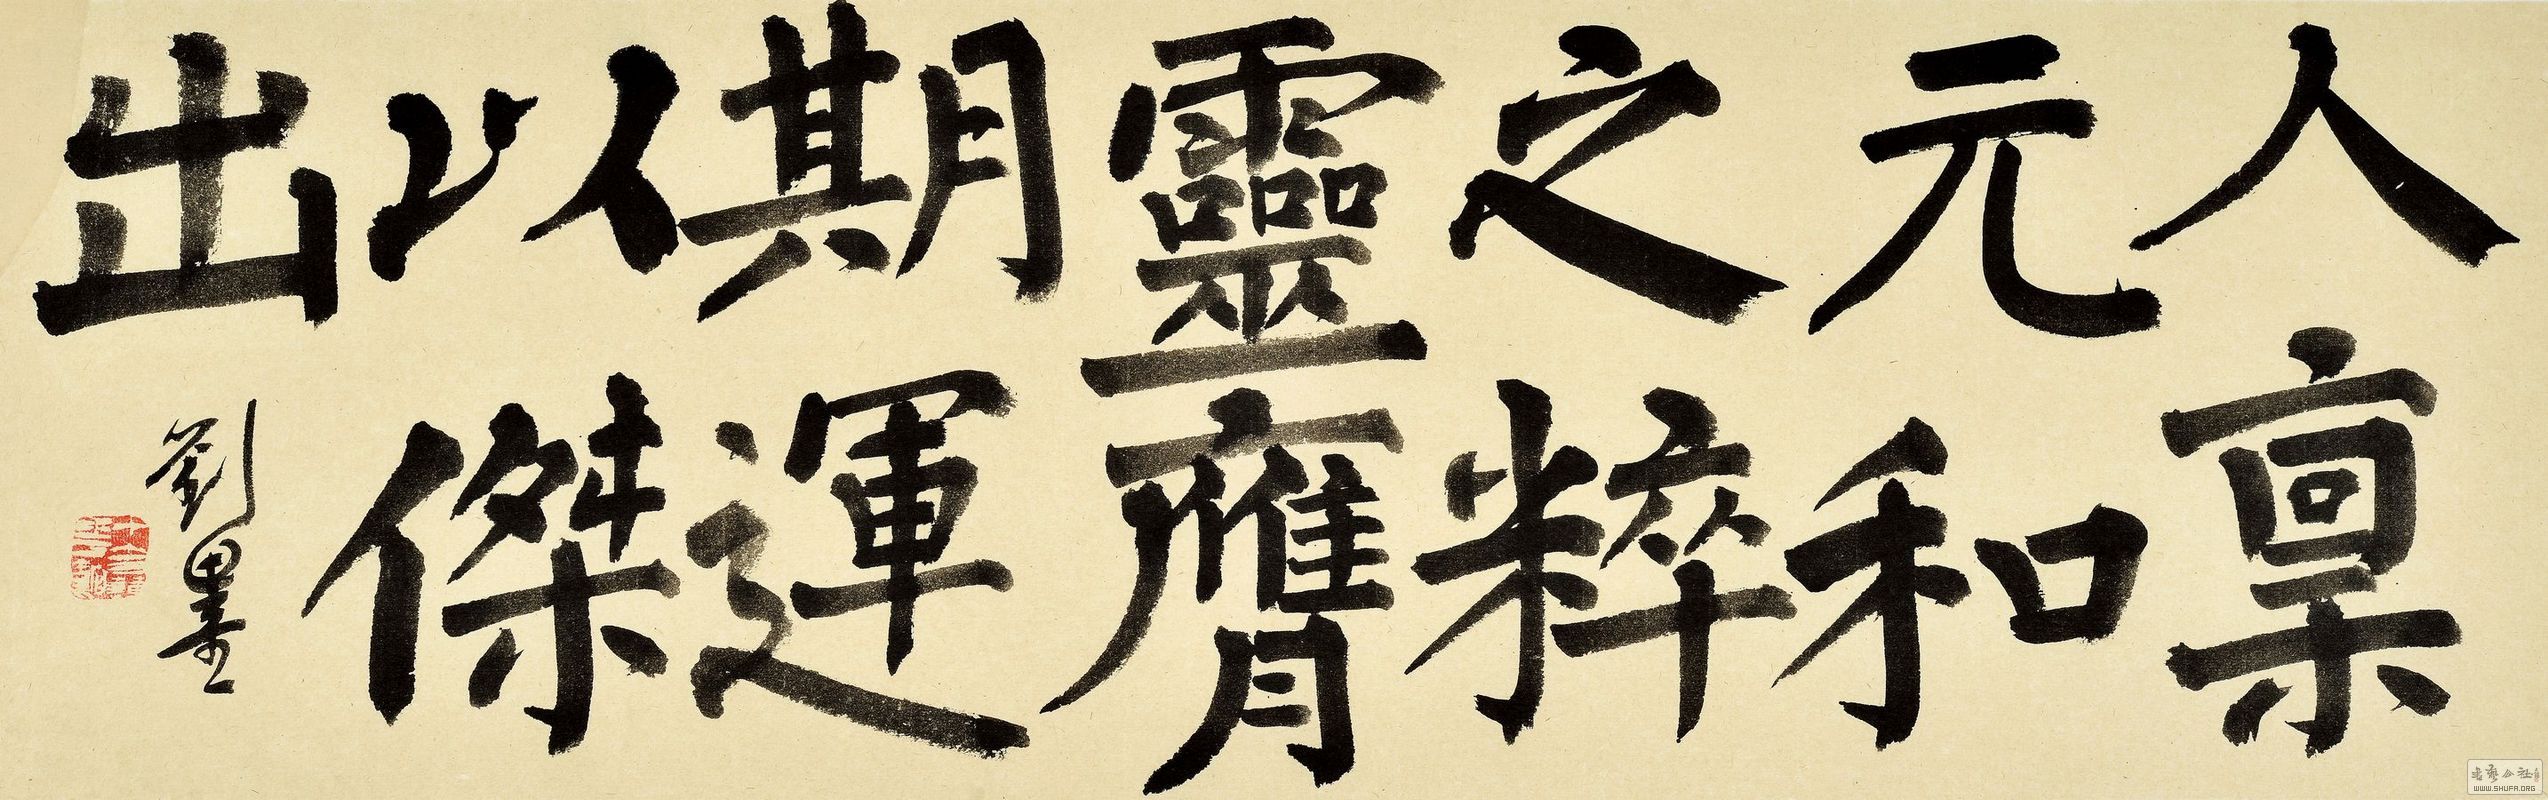 人稟
元和
之粹
靈膺
期運
以傑
出
劉墨
書藝公社
WWW.SHUFA.ORG